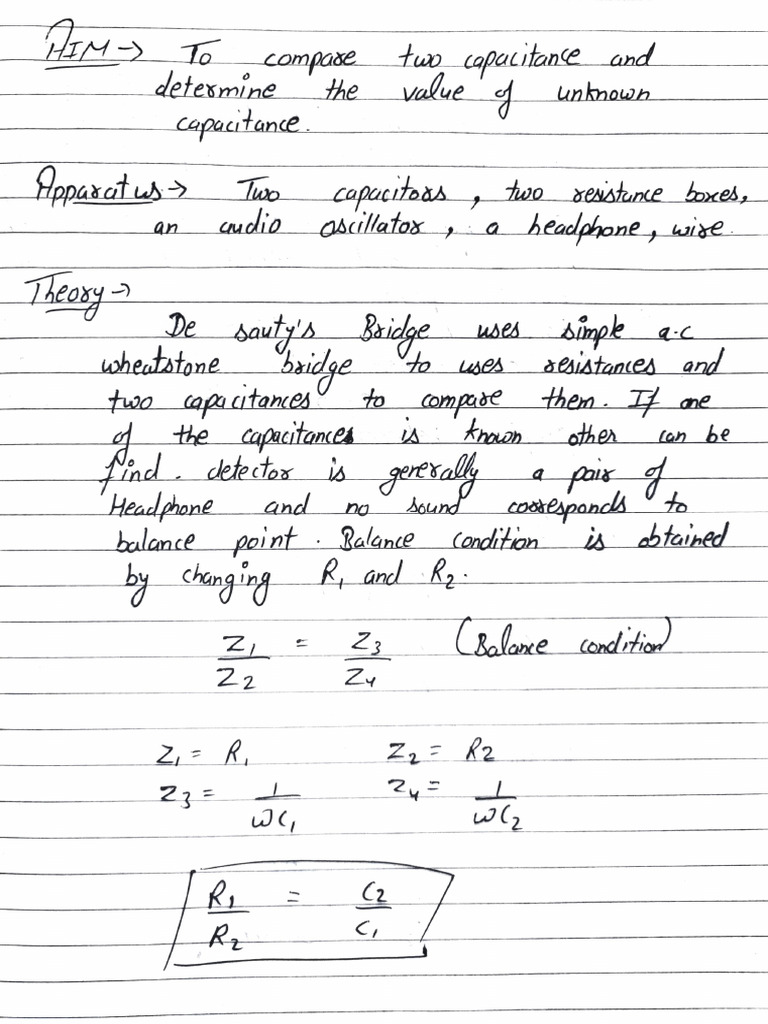 AIM → To compare two capacitance and
determine the value of unknown
capacitance.
Apparatus → Two capacitors, two resistance boxes,
an audio oscillator, a headphone, wire.
Theory →
De sauty's Bridge uses simple a.c
wheatstone bridge to uses resistances and
two capacitances to compare them. If one
of the capacitances is known other can be
find. detector is generally a pair of
Headphone and no sound corresponds to
balance point. Balance condition is obtained
by changing R₁ and R₂.
Z₁/Z₂ = Z₃/Z₄ (Balance condition)
Z₁ = R₁ Z₂ = R2
Z3 = 1/ωC₁ Z₄ = 1/ωC₂
R₁/R₂ = C₂/C₁